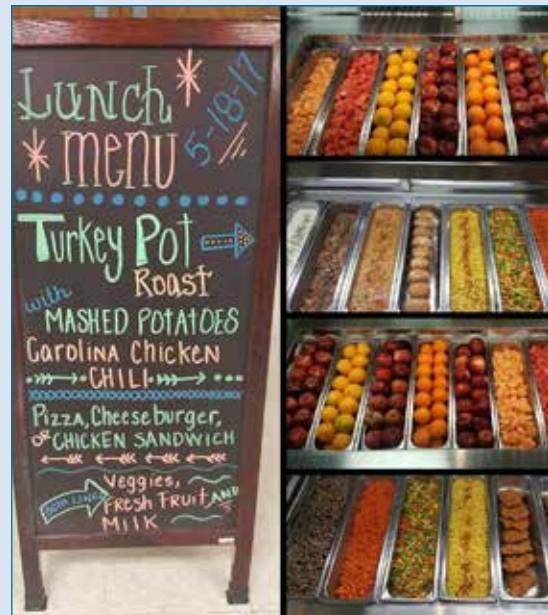 Lunch
MENU
5-18-17
Turkey Pot
Roast
with
MASHED POTATOES
Carolina Chicken
CHILI
Pizza, Cheeseburger,
or CHICKEN SANDWICH
BOTH LINES
Veggies,
FRESH FRUIT AND
MILK